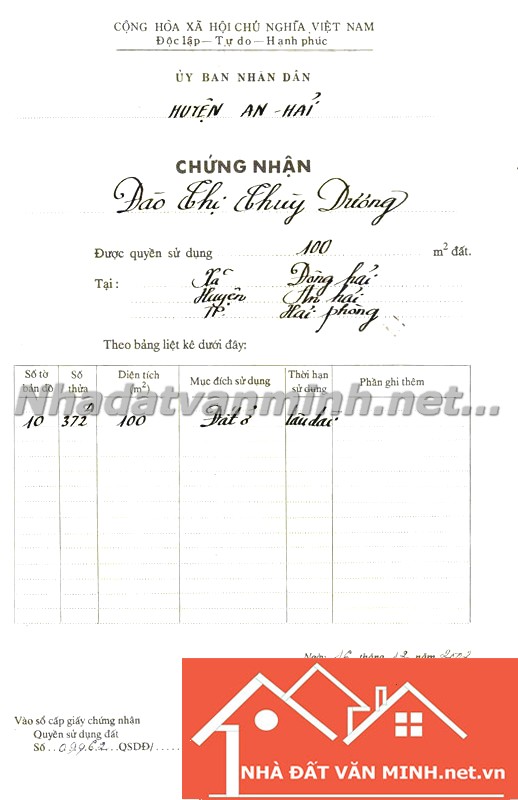 CỘNG HÒA XÃ HỘI CHỦ NGHĨA VIỆT NAM
Độc lập — Tự do — Hạnh phúc
ỦY BAN NHÂN DÂN
HUYỆN AN - HẢI
CHỨNG NHẬN
Đào Thị Thùy Dương
Được quyền sử dụng 100 m² đất.
Tại: Xã Đông hải
Huyện An hải
TP. Hải phòng
Theo bảng liệt kê dưới đây:
Số tờ bản đồ Số thửa Diện tích (m²) Mục đích sử dụng Thời hạn sử dụng Phần ghi thêm
Nhadatvanminh.net...
10 372 D 100 Đất ở lâu dài
Ngày 16 tháng 12 năm 2002
Vào sổ cấp giấy chứng nhận
Quyền sử dụng đất
Số QSDĐ/
NHÀ ĐẤT VĂN MINH.net.vn